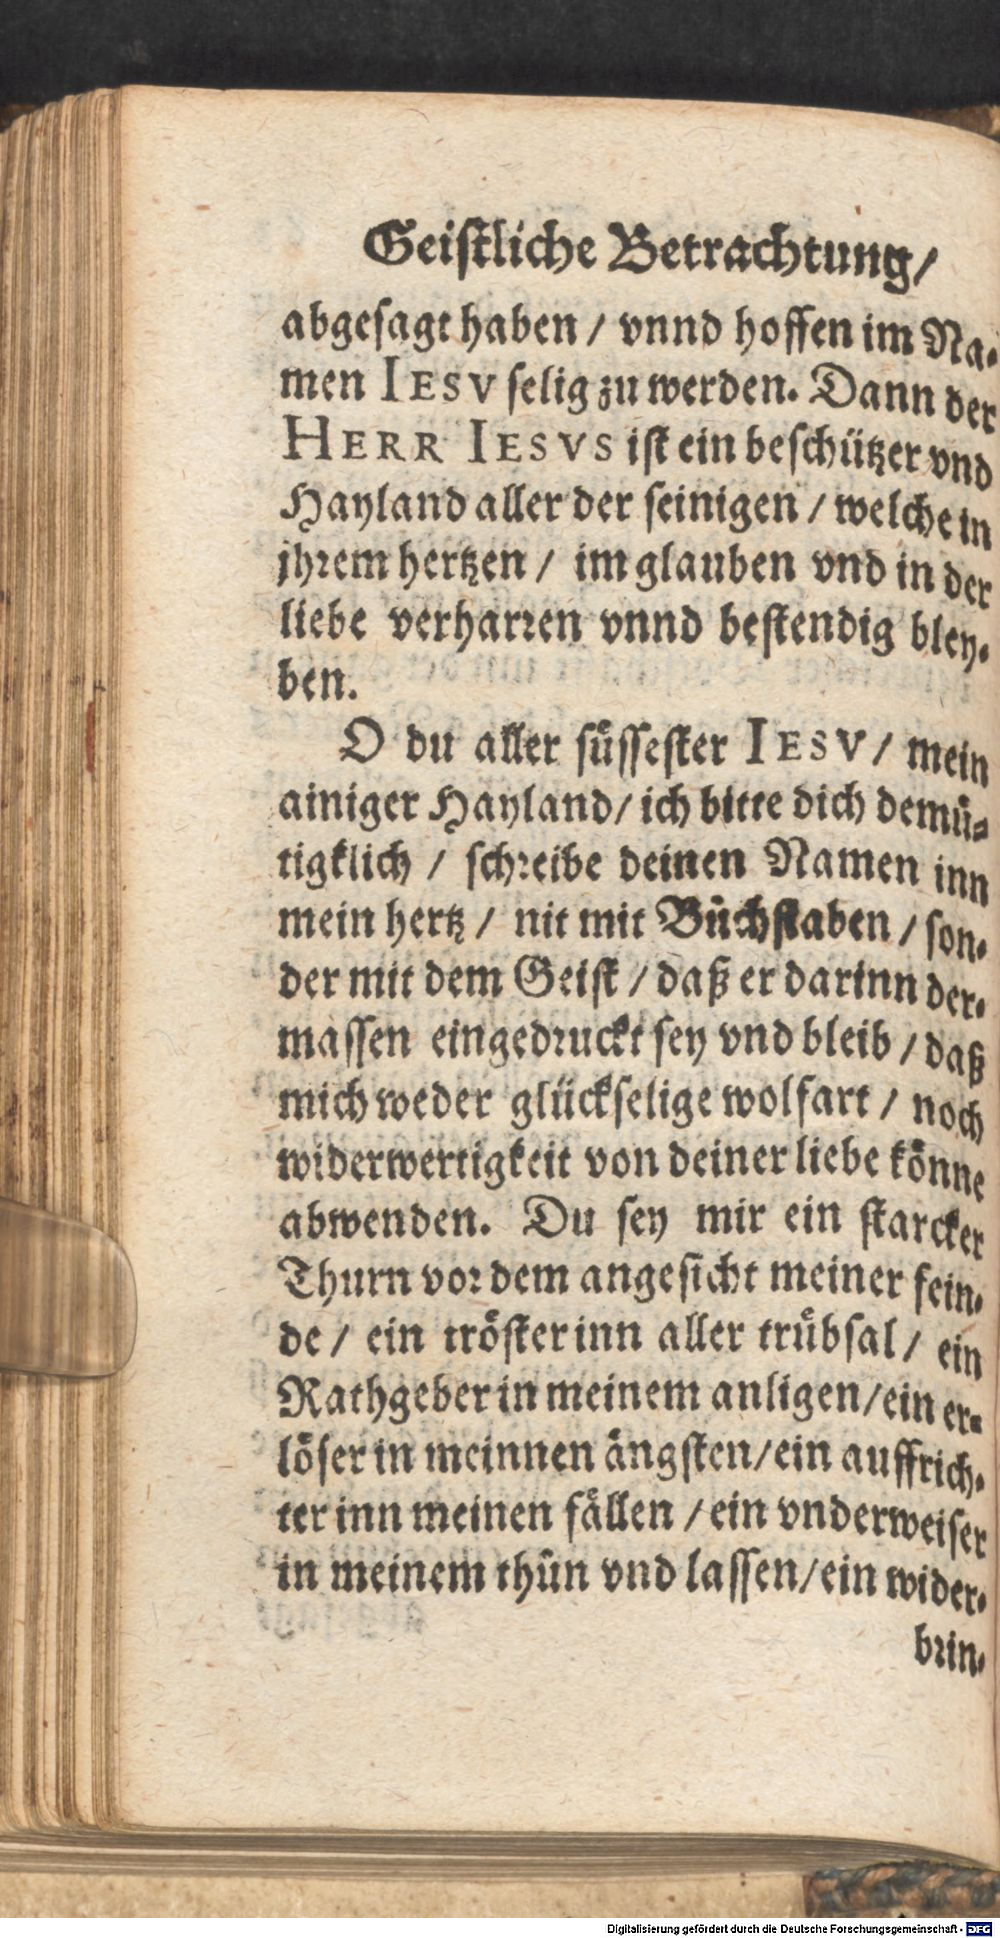 Geistliche Betrachtung/
abgesagt haben / vnnd hoffen im Na-
men IESV selig zu werden. Dann der
HERR IESVS ist ein beschützer vnd
Hayland aller der seinigen / welche in
jhrem hertzen / im glauben vnd in der
liebe verharren vnnd bestendig bley-
ben.
O du aller süssester IESV/ mein
ainiger Hayland/ ich bitte dich demü-
tigklich / schreibe deinen Namen inn
mein hertz / nit mit Bůchstaben / son-
der mit dem Geist / daß er darinn der-
massen eingedruckt sey vnd bleib / daß
mich weder glückselige wolfart / noch
widerwertigkeit von deiner liebe könne
abwenden. Du sey mir ein starcker
Thurn vor dem angesicht meiner fein-
de / ein tröster inn aller trübsal/ ein
Rathgeber in meinem anligen/ein er-
löser in meinnen ängsten/ein auffrich-
ter inn meinen fällen / ein vnderweiser
in meinem thůn vnd lassen/ein wider-
brin-
Digitalisierung gefördert durch die Deutsche Forschungsgemeinschaft - DFG